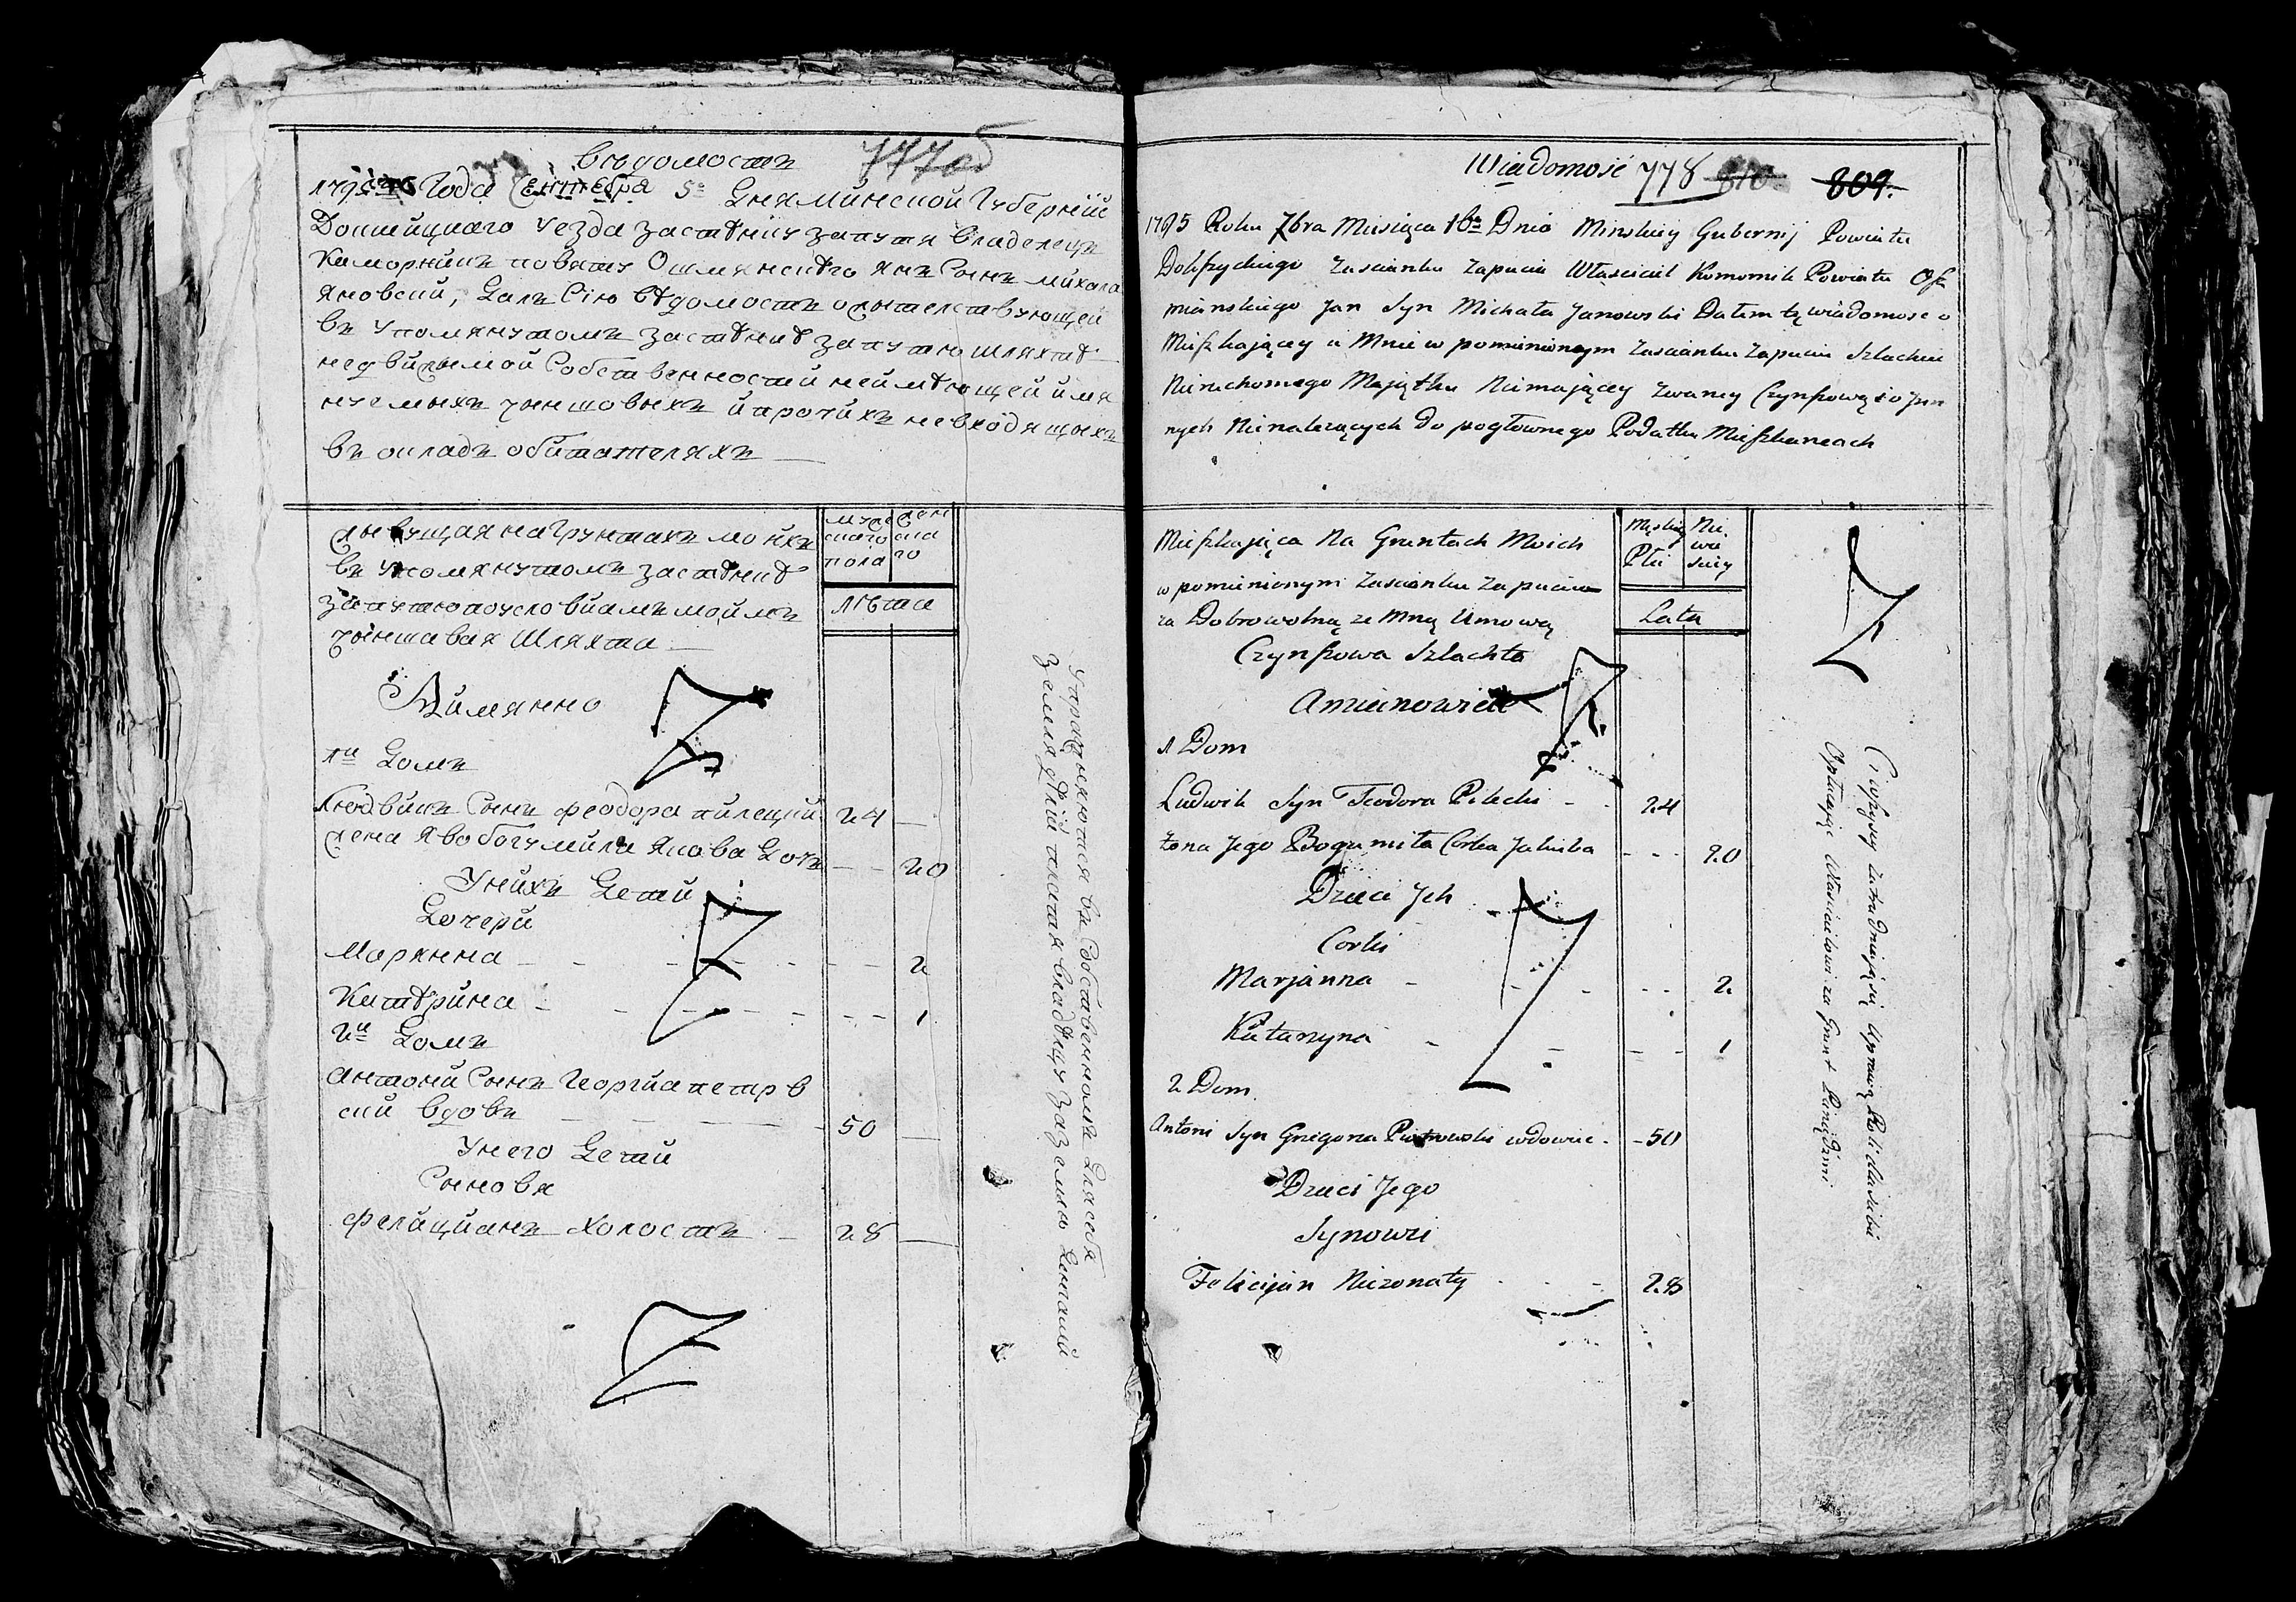 Вѣдомость
777об
1795 Года Сентебра 5º Дня Минской Губерніи
Докшицкаго уезда застѣнку запутя владелецъ
Каморникъ повяту Ошмянскѣго янъ Сынъ михала
яновский, Далъ Сію вѣдомость о жытелствующей
въ упомянутомъ застѣнкѣ запутю шляхтѣ
недвижымой Собственности неймѣющей имя
нуемыхъ чыншовыхъ и прочихъ невходящыхъ
въ окладъ обитателяхъ
жывущая на Грунтахъ мойхъ
въ упомянутомъ застѣнкѣ
запутю по условиамъ моймъ
чыншавая Шляхта
мужескаго пола
женскаго
лѣта
Аймянно
1й Домъ
Людвикъ Сынъ феодора пилецкий 24
жена яво богумила якова Дочъ 20
Унихъ Дети
Дочери
Марянна 2
Катѣрина 1
2й Домъ
Антоний Сынъ Георгиа петров
ский вдовъ 50
Унего Дети
Сыновя
фелицианъ холостъ 28
Упражняются въ Собственномъ Длясебя
земледѣлій платя владѣлцу за землю Денгами
Wiadomość
778 810 809.
1795 Roku 7bra Miesiąca 16º Dnia Minskiey Gubernij Powiatu
Dokszyckiego Zascianku Zapucia Właściciel Komornik Powiatu Osz
mianskiego Jan Syn Michała Janowski Dałem tę wiadomosc o
Mieszkaiącey u Mnie w pomienionym Zascianku Zapuciu Szlachcie
Nieruchomego Maiątku Niemaiącey zwaney Czynszową i o Jnn
nych Nienalezących do pogłownego Podatku Mieszkancach
Mieszkaiąca Na Gruntach Moich
w pomienionym Zascianku Zapuciu
za Dobrowolną ze Mną Umową
Czynszowa Szlachta
Męskiey Płci
Niewiesciey
Lata
A mianowicie
1 Dom
Ludwik Syn Teodora Pilecki 24
Żona Jego Bogumiła Corka Jakuba 20
Dzieci Jch
Corki
Marjanna 2
Katarzyna 1
2 Dom
Antoni Syn Grzegorza Piotrowski wdowiec 50
Dzieci Jego
Synowie
Felicijan Niezonaty 28
Ci wszyscy zatrudniaią się Uprawą Roli dla siebie
Opłacaiąc Właścicielowi za Grunt Pieniędzmi